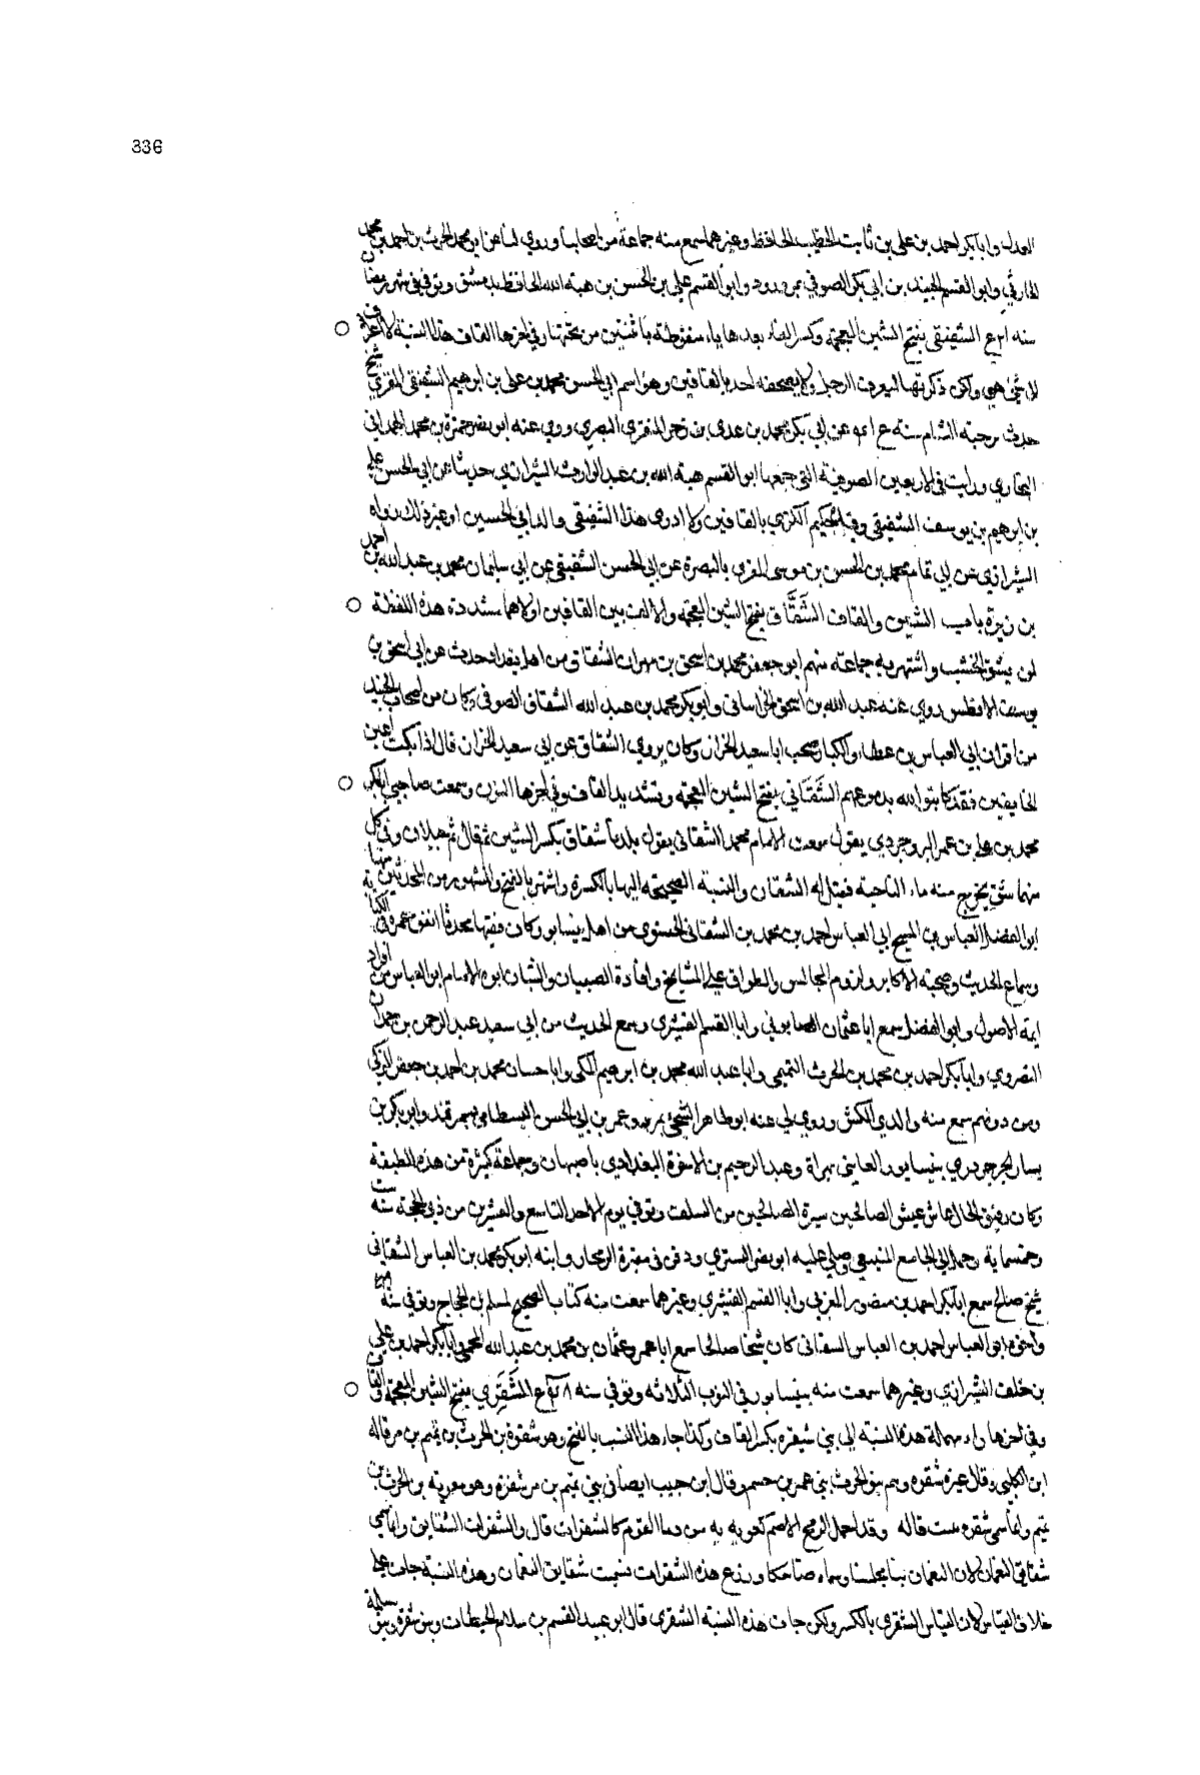 336
العدل وابا بكر احمد بن علي بن ثابت الخطيب الحافظ وغيرهما سمع منه جماعة من اصحابنا وروي لنا عن ابو محمد الحرث بن احمد بن محمد
وابو القسم الجنيد بن ابي بكر الصوفي بمرورود وابو القسم علي بن الحسن بن هبة الله الحافظ بدمشق وتوفي في شهر رمضان
سنه الشفيقي بفتح الشين المعجمة وكسر الفاء بعدها ياء منقوطة باثنتين من تحتها وفي اخرها القاف هذا النسبة لا اعرف
لاي شي هي ولكن ذكرتها ليعرف الرجل ولا يصحفه احد بالقافين وهو اسم ابي الحسن محمد بن علي بن ابرهيم الشفيقي المقري شيخ
حدث برحبة الشام سنة عن ابي بكر محمد بن عدي بن زحر المنقري البصري روي عنه ابو نصر حمزة بن محمد
البخاري ورايت في الاربعين الصوفية التي جمعها ابو القسم هبة الله بن عبد الوارث الشيرازي حديثا عن ابي الحسن علي
بن ابرهيم بن يوسف الشقيقي بالقافين ولا ادري هذا الشفيقي والد ابي الحسين او غير ذلك رواه
الشيرازي عن ابي تمام محمد بن الحسن بن موسي المقري بالبصرة عن ابي الحسن الشفيقي عن ابي سليمان محمد بن عبد الله بن احمد
بن زبرة باب الشين والقاف الشَقَّاق بفتح الشين المعجمة والالف بين القافين اولاهما مشددة هذه اللفظة
لمن يشق الخشب واشتهر به جماعة منهم ابو جعفر محمد بن اسحق بن مهران الشقاق من اهل بغداد حدث عن ابي اسحق بن
يوسف الافطس روي عنه عبد الله بن اسحق الخراساني وابو بكر محمد بن عبد الله الشقاق الصوفي كان من اصحاب الجنيد
من اقران ابي العباس بن عطاء والكبار صحب ابا سعيد الخراز وكان يروي الشقاق عن ابي سعيد الخراز قال اذا بكت اعين
الخايفين فقد كاتبوا الله بدموعهم الشَقّاني بفتح الشين المعجمة وتشديد القاف وفي اخرها النون وسمعت صاحبي ابا بكر
محمد بن علي بن عمر البروجردي يقول سمعت الامام محمد الشقاني يقول بلدنا شقاق بكسر الشين ثم قال ثم جبلان وفي كل
منهما شق يخرج منه ماء الناحية فقيل له الشقان والنسبة الصحيحة اليها بالكسرة واشتهر بالفتح والمشهور من المحدثين منها
ابو الفضل العباس بن ابي العباس احمد بن محمد بن الشقاني الحسنوي من اهل نيسابور كان فقيها محدثا انفق عمره في الكتابة
وسماع الحديث وصحبة الاكابر ولزوم المجالس والطواف علي المشايخ وافادة الصبيان والشبان ابوه الامام ابو العباس من افراد
ايمة الاصول وابو الفضل سمع ابا عثمان الصابوني وابا القسم القشيري وسمع الحديث من ابي سعيد عبد الرحمن بن حمدان
النصروي وابا بكر احمد بن محمد بن الحرث التميمي وابا عبد الله محمد بن ابرهيم المكي وابا حسان محمد بن احمد بن جعفر المزكي
ومن دونهم سمع منه والدي الكثير وروي لي عنه ابو طاهر السنجي بمرو وعمر بن ابي الحسن البسطامي بسمرقند وابو بكر بن
يسار الجرجردي بنيسابور بهراة وعبد الرحيم بن الاخوة البغدادي باصبهان وجماعة كثيرة من هذه الطبقة
وكان رقيق الحال عاش عيش الصالحين سيرة الصالحين من السلف وتوفي يوم الاحد التاسع والعشرين من ذي الحجة سنة ست
وخمسماية وحمل الي الجامع المنيعي وصلي عليه ابو نصر ودفن في مقبرة وابنه ابو بكر محمد بن العباس الشقاني
شيخ صالح سمع ابا بكر احمد بن منصور المغربي وابا القسم القشيري وغيرهما سمعت منه كتاب الصحيح لمسلم بن الحجاج وتوفي سنة
واخوه ابو العباس احمد بن العباس الشقاني كان شيخا صالحا سمع ابا عمرو عثمان بن محمد بن عبد الله المحمي وابا بكر احمد بن علي
بن خلف الشيرازي وغيرهما سمعت منه بنيسابور في النوب الثلاثة وتوفي سنة الشَقَري بفتح الشين المعجمة والقاف
وفي اخرها راء مهملة هذه النسبة الي بني شقره بكسر القاف وكذا جاء هذا النسب بالفتح وهو شقرة بن الحرث بن تميم بن مر قاله
ابن الكلبي وقال غيره شقره وهم بنو الحرث وقال ابن حبيب ايضا في بني تميم بن مر شقرة وهو معوية بن الحرث بن
تميم وانما سمي شقره ببيت قاله وقد احمل الرمح الاصم كعوبه به من دماء القوم كالشقرات قال والشقرات الشقايق وانما سمي
شقايق النعمان لان النعمان بنا مجلسا وسماه ضاحكا وزرع هذه الشقرات فسميت شقايق النعمان وهذه النسبة جاءت علي
خلاف القياس لان القياس الشقري بالكسر ولكن جاءت هذه النسبة الشقري قال ابو عبيد القسم بن سلام الحبطات وبنو شقرة وبنو سلمة